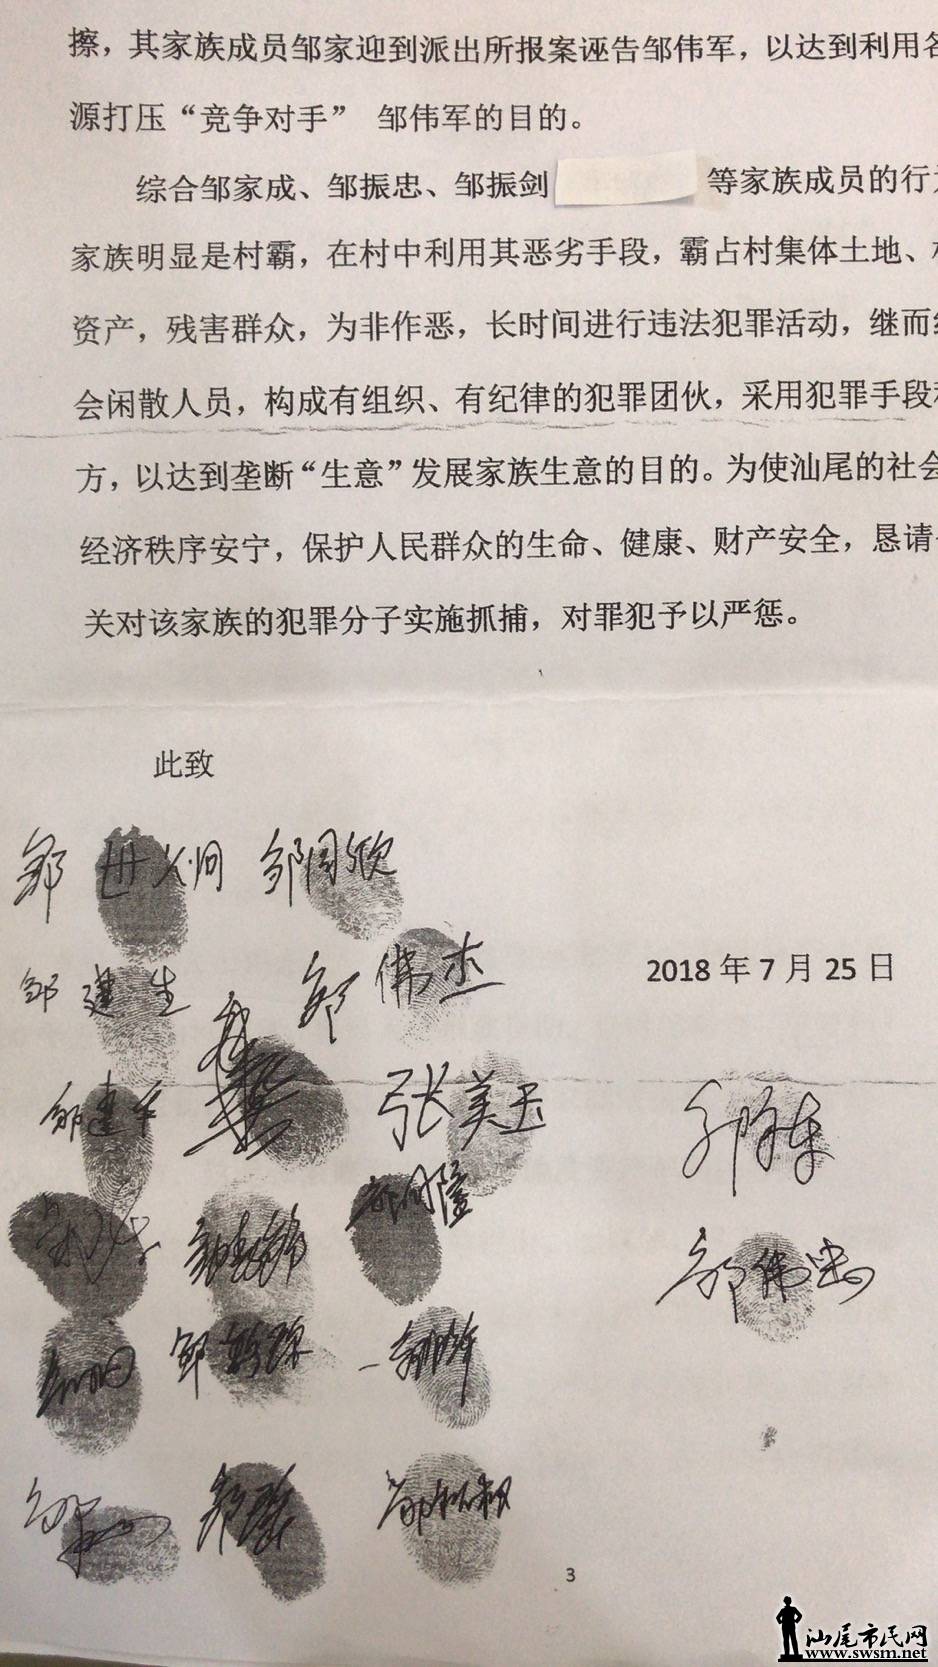 擦，其家族成员邹家迎到派出所报案诬告邹伟军，以达到利用各
源打压“竞争对手” 邹伟军的目的。
综合邹家成、邹振忠、邹振剑 等家族成员的行为
家族明显是村霸，在村中利用其恶劣手段，霸占村集体土地、
资产，残害群众，为非作恶，长时间进行违法犯罪活动，继而
会闲散人员，构成有组织、有纪律的犯罪团伙，采用犯罪手段
方，以达到垄断“生意”发展家族生意的目的。为使汕尾的社会
经济秩序安宁，保护人民群众的生命、健康、财产安全，恳请
关对该家族的犯罪分子实施抓捕，对罪犯予以严惩。
此致
邹
邹建生
邹伟杰
2018年7月25日
邹建平
张美玉
邹伟忠
3
汕尾市民网
www.swsm.net